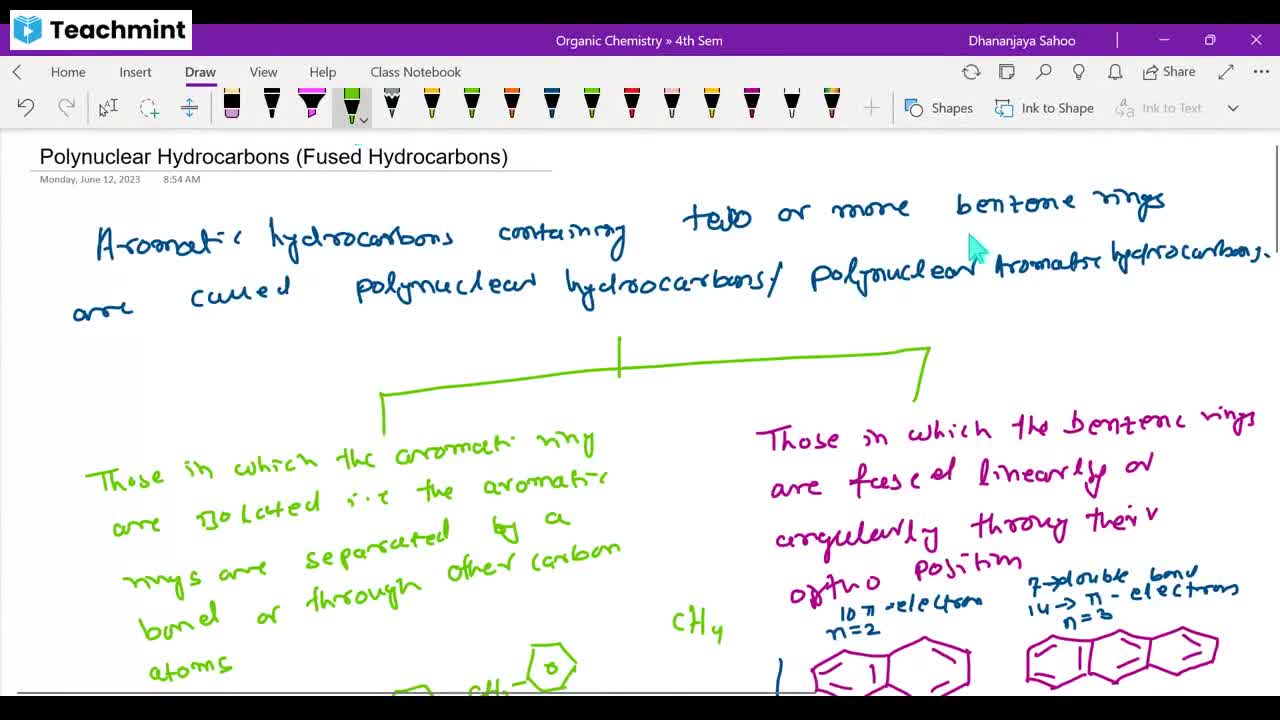 Teachmint
Organic Chemistry » 4th Sem
Dhananjaya Sahoo
Home Insert Draw View Help Class Notebook
Share
Shapes
Ink to Shape
Ink to Text
Polynuclear Hydrocarbons (Fused Hydrocarbons)
Monday, June 12, 2023 8:54 AM
Aromatic hydrocarbons containing two or more benzene rings
are called polynuclear hydrocarbons/ polynuclear Aromatic hydrocarbons.
Those in which the aromati ring
are isolated i.e the aromatic
rings are separated by a
bond or through other carbon
atoms
CH4
CH2
Those in which the benzene rings
are fused linearly or
angularly throug their
ortho position
10 π-electron
n=2
7→double bond
14→ π - electrons
n=3